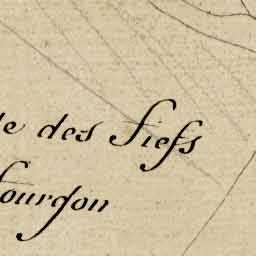 de des fiefs
ourdon